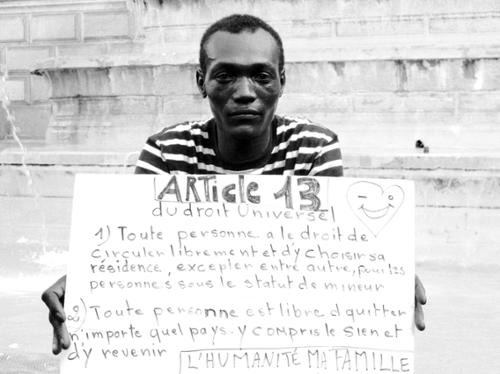 ARTicle 13
du droit Universel
1) Toute personne a le droit de
circuler librement et d'y choisir sa
résidence, excepter entre autre, pour les
personnes sous le statut de mineur
2) Toute personne est libre d quitter
n'importe quel pays. y compris le sien et
d'y revenir
L'HUMANITÉ MA FAMILLE